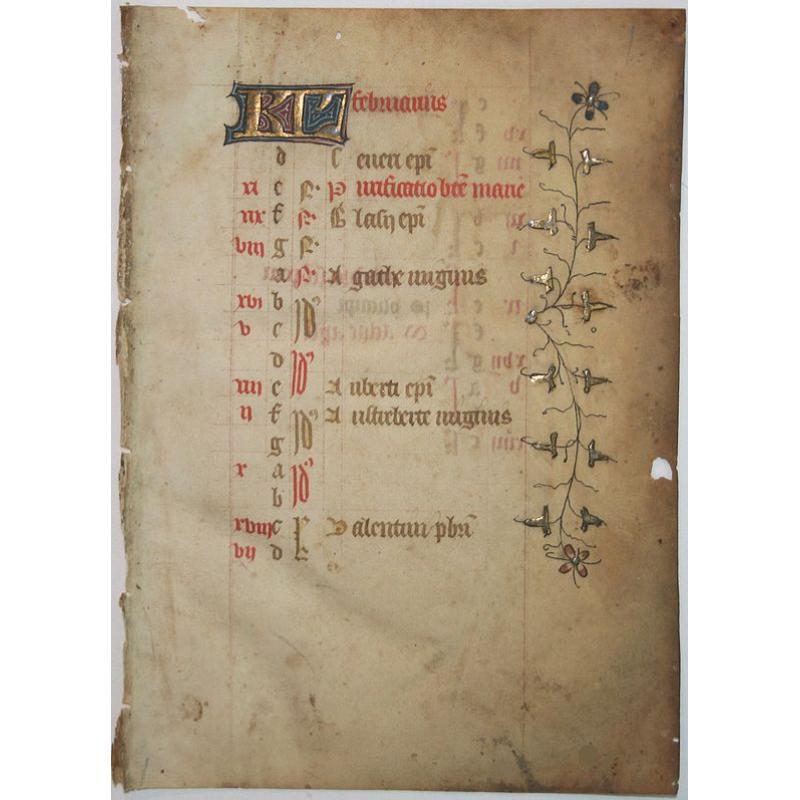 KL februarius
d Seueri epi
xi e N Purificatio bte marie
xix f N Blasij epi
viij g N
a N Agathe uirginis
xvi b Id
v c
d Id
xiii e Auberti epi
ii f Id Austreberte uirginis
g
x a Id
b
xviii c k Valentini pbri
vij d k